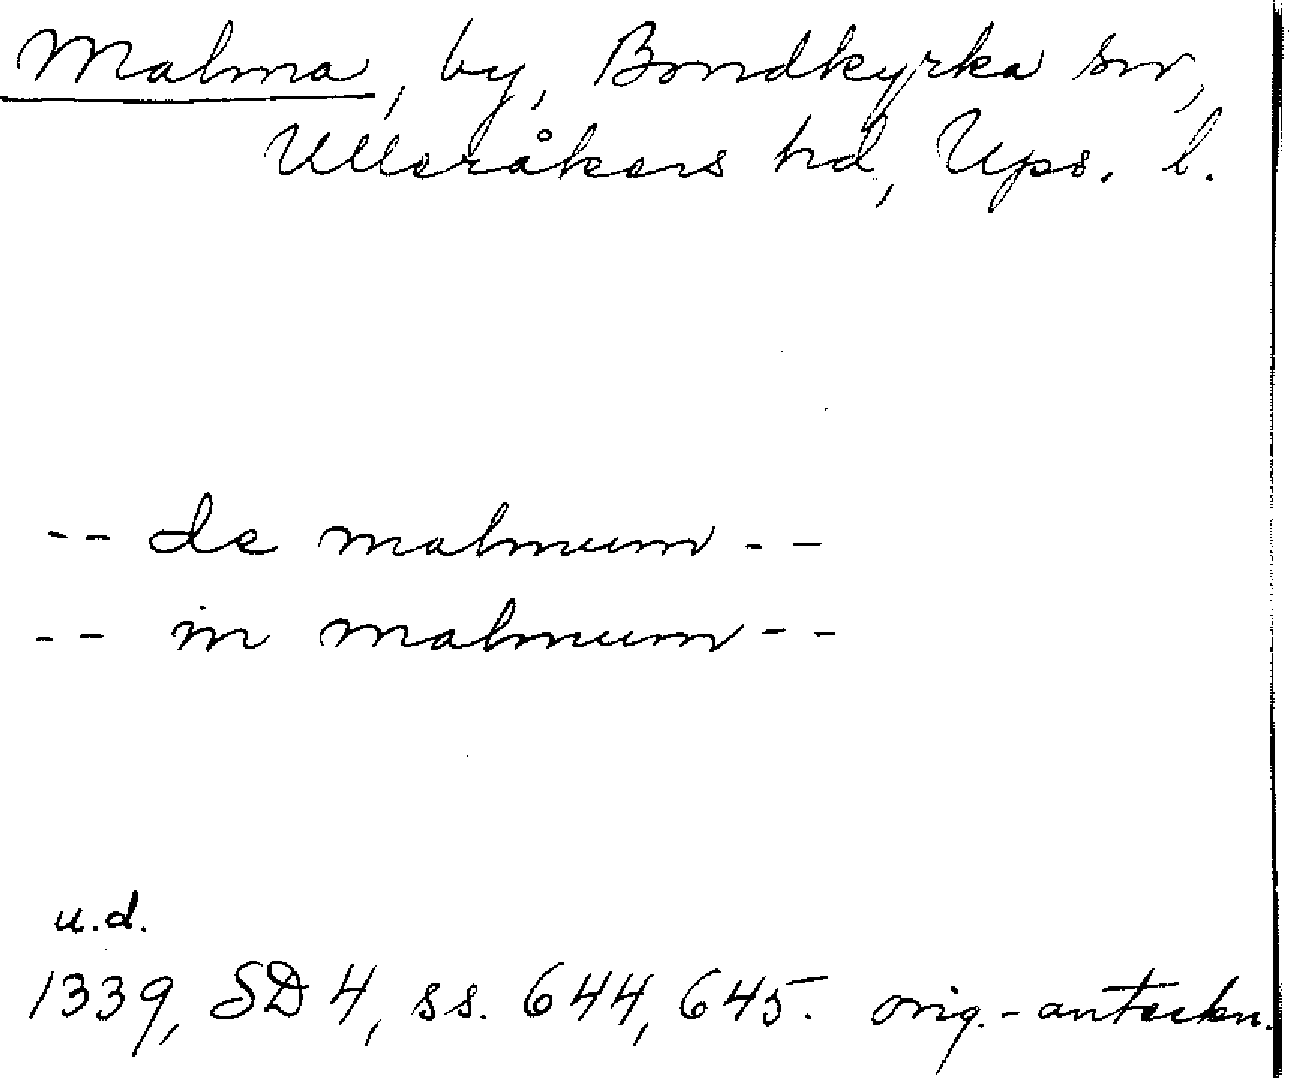 Malma, by, Bondkyrka sn,
Ulleråkers hd, Ups. l.
-- de malmum --
-- in malmum --
u.d.
1339, SD 4, ss. 644, 645. orig.-anteckn.